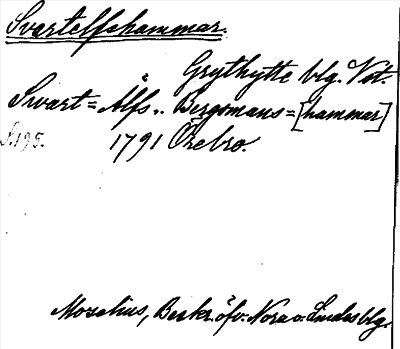 Svartelfshammar.
Grythytte blg. Vst.
Swart=Älfs.. Bergsmans=[hammar]
S.195. 1791 Örebro.
Mozelius, Beskr. öfv. Nora o. Lindes blg.